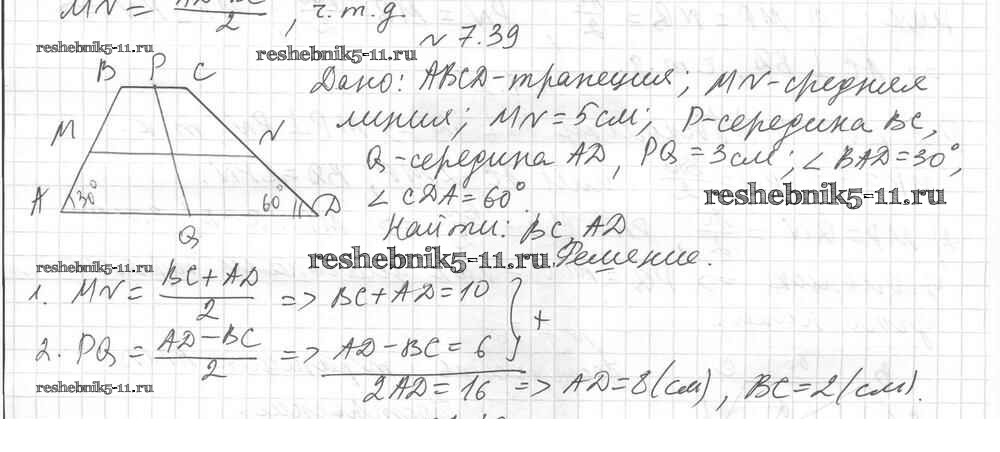 MN = AD-BC / 2 , ч.т.д.
reshebnik5-11.ru
reshebnik5-11.ru
N 7.39
B P C
M N
A 30° 60° D
Q
Дано: ABCD-трапеция; MN-средняя
линия; MN=5см; P-середина BC,
Q-середина AD, PQ=3см; ∠BAD=30°,
reshebnik5-11.ru
∠CDA=60°.
Найти: BC, AD
reshebnik5-11.ru
reshebnik5-11.ru
Решение.
1. MN = BC+AD / 2 => BC+AD=10
+
2. PQ = AD-BC / 2 => AD-BC=6
reshebnik5-11.ru
2AD=16 => AD=8(см), BC=2(см).